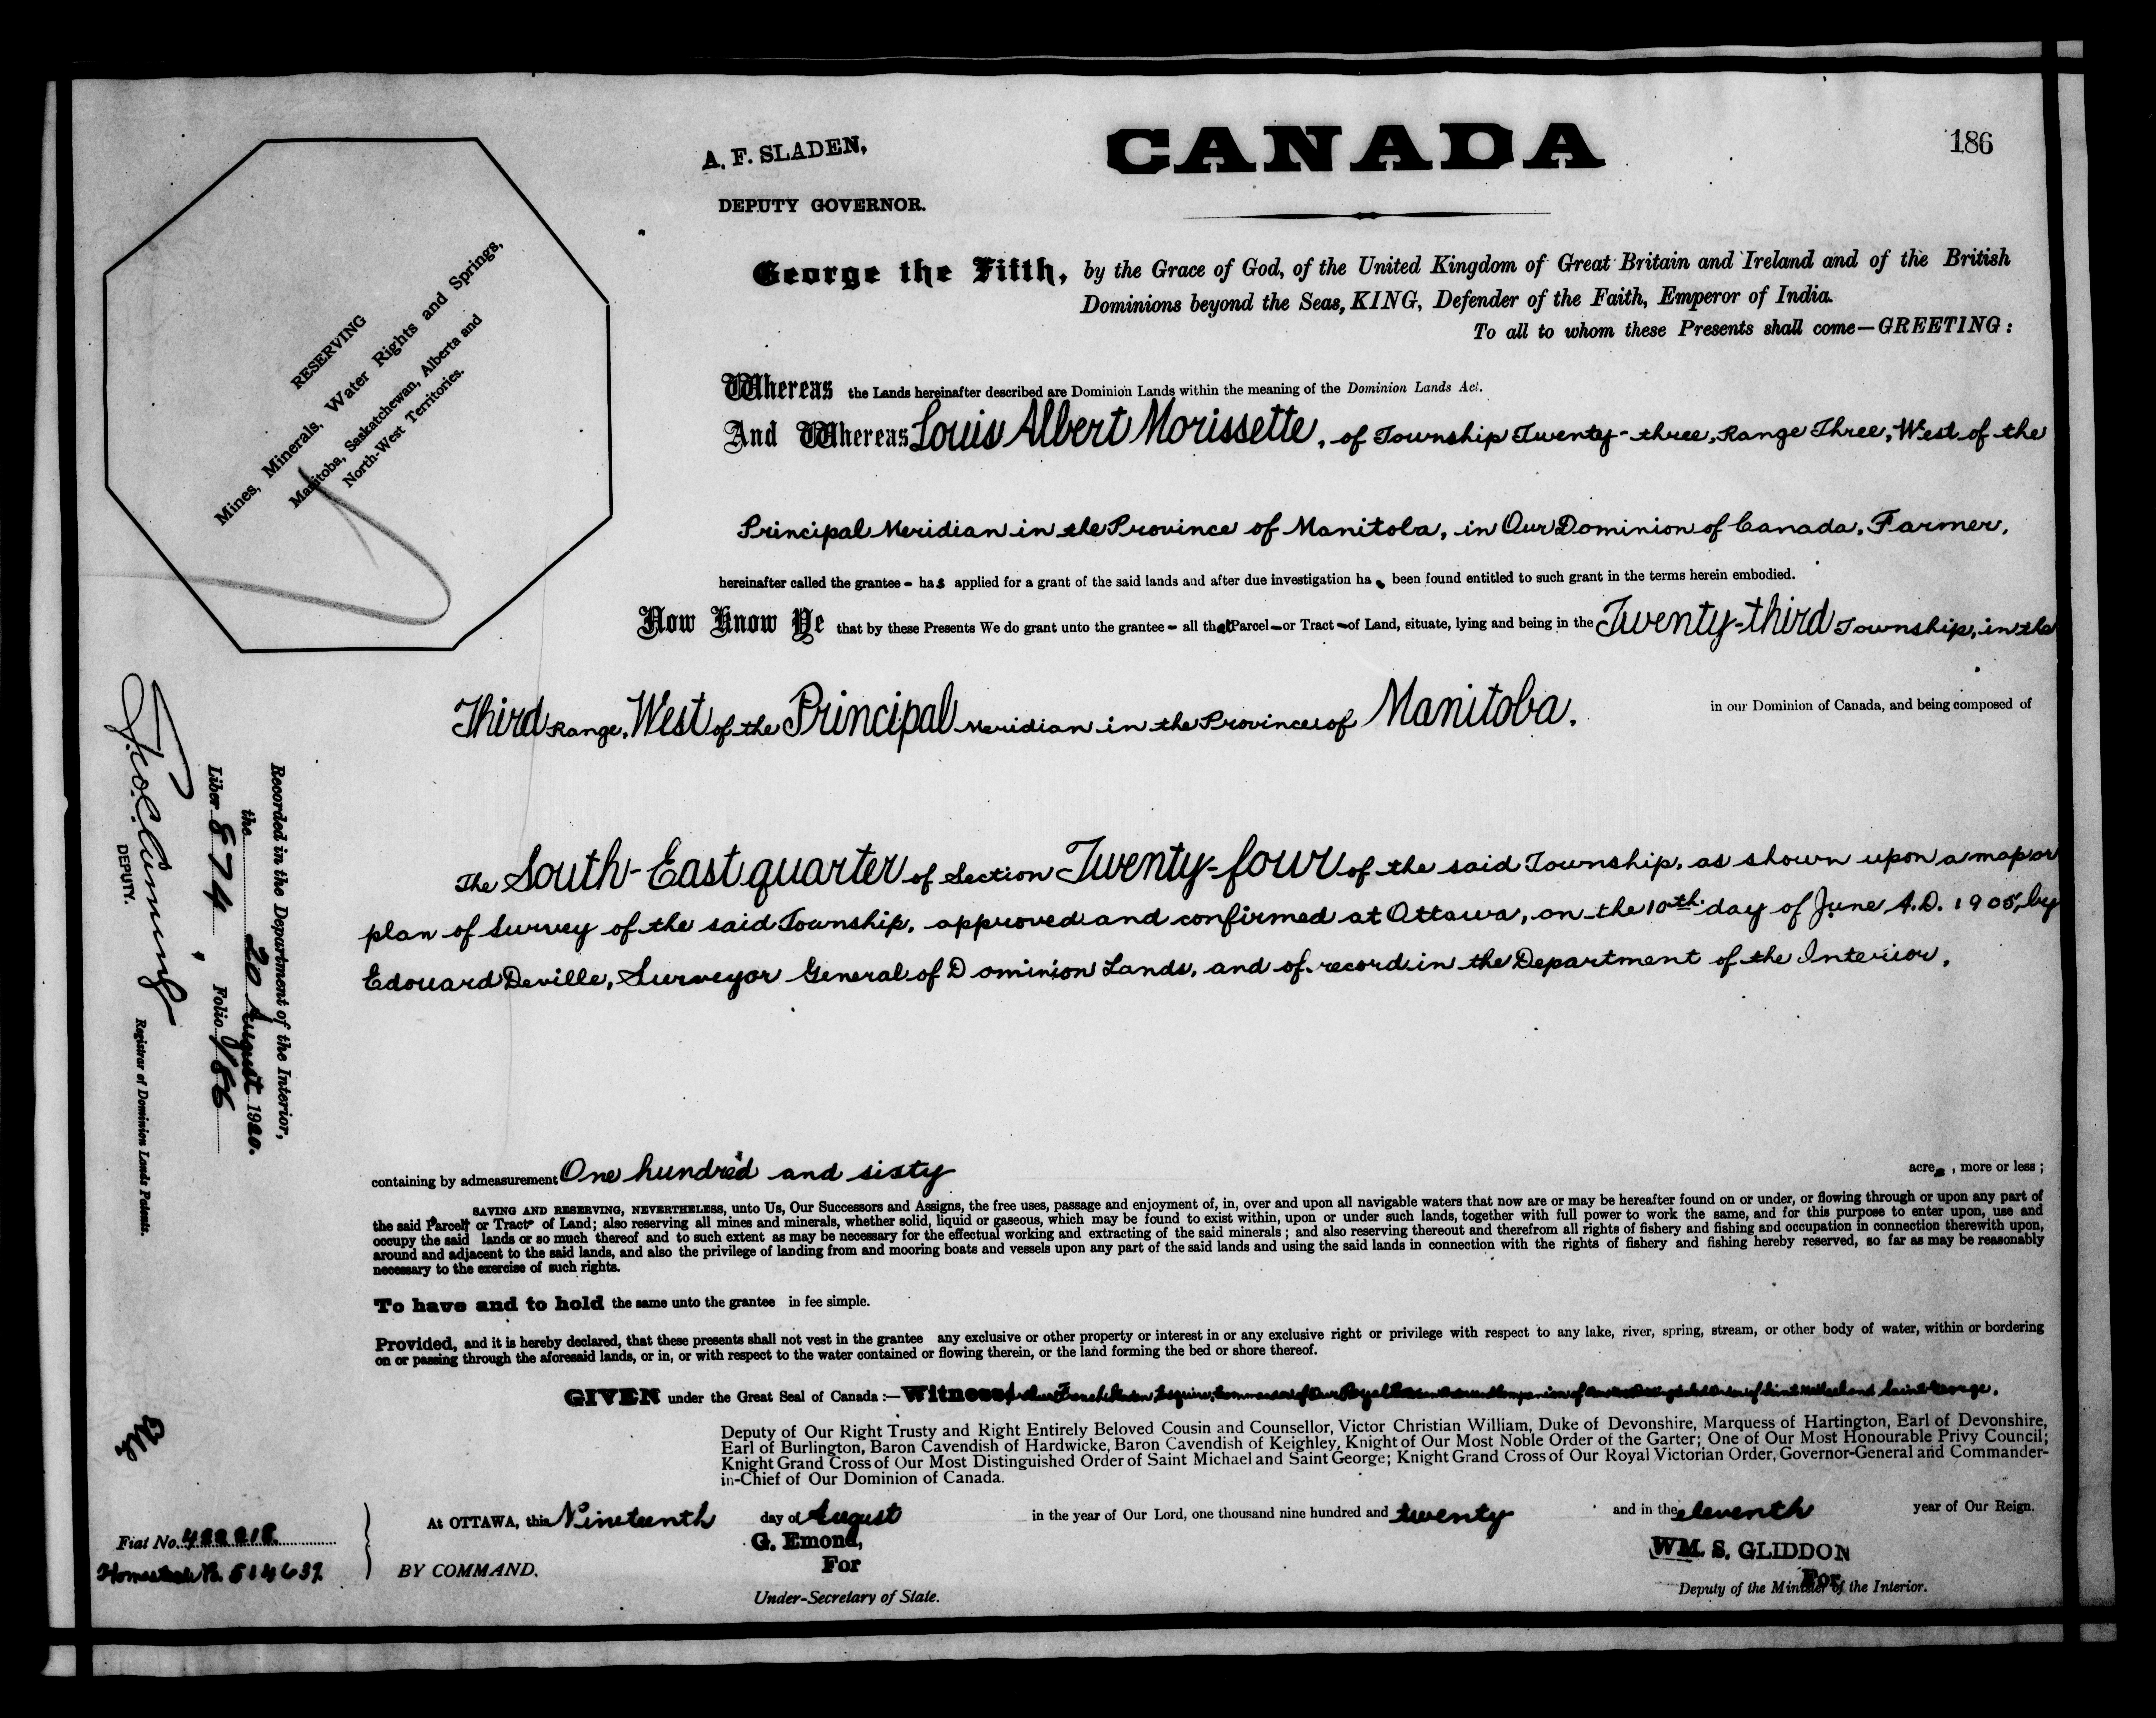 CANADA
186
A. F. SLADEN,
DEPUTY GOVERNOR.
RESERVING
Mines, Minerals, Water Rights and Springs,
Manitoba, Saskatchewan, Alberta and
North-West Territories.
George the Fifth, by the Grace of God, of the United Kingdom of Great Britain and Ireland and of the British
Dominions beyond the Seas, KING, Defender of the Faith, Emperor of India.
To all to whom these Presents shall come—GREETING:
Whereas the Lands hereinafter described are Dominion Lands within the meaning of the Dominion Lands Act.
And Whereas Louis Albert Morissette, of Township Twenty-three, Range Three, West of the
Principal Meridian in the Province of Manitoba, in Our Dominion of Canada, Farmer,
hereinafter called the grantee - has applied for a grant of the said lands and after due investigation has been found entitled to such grant in the terms herein embodied.
Now Know Ye that by these Presents We do grant unto the grantee - all that Parcel - or Tract - of Land, situate, lying and being in the Twenty-third Township, in the
Third Range, West of the Principal Meridian in the Province of Manitoba. in our Dominion of Canada, and being composed of
The South-East quarter of Section Twenty-four of the said Township, as shown upon a map or
plan of Survey of the said Township, approved and confirmed at Ottawa, on the 10th. day of June A.D. 1905, by
Edouard Deville, Surveyor General of Dominion Lands, and of record in the Department of the Interior.
Recorded in the Department of the Interior,
the 20 August 1920.
Liber 874, Folio 186
DEPUTY. Registrar of Dominion Lands Patents.
containing by admeasurement One hundred and sixty acres, more or less;
SAVING AND RESERVING, NEVERTHELESS, unto Us, Our Successors and Assigns, the free uses, passage and enjoyment of, in, over and upon all navigable waters that now are or may be hereafter found on or under, or flowing through or upon any part of
the said Parcel or Tract of Land; also reserving all mines and minerals, whether solid, liquid or gaseous, which may be found to exist within, upon or under such lands, together with full power to work the same, and for this purpose to enter upon, use and
occupy the said lands or so much thereof and to such extent as may be necessary for the effectual working and extracting of the said minerals; and also reserving thereout and therefrom all rights of fishery and fishing and occupation in connection therewith upon,
around and adjacent to the said lands, and also the privilege of landing from and mooring boats and vessels upon any part of the said lands and using the said lands in connection with the rights of fishery and fishing hereby reserved, so far as may be reasonably
necessary to the exercise of such rights.
To have and to hold the same unto the grantee in fee simple.
Provided, and it is hereby declared, that these presents shall not vest in the grantee any exclusive or other property or interest in or any exclusive right or privilege with respect to any lake, river, spring, stream, or other body of water, within or bordering
on or passing through the aforesaid lands, or in, or with respect to the water contained or flowing therein, or the land forming the bed or shore thereof.
GIVEN under the Great Seal of Canada:—Witness Esquire, Commander of Our Royal Companion of Saint Michael and Saint George,
Deputy of Our Right Trusty and Right Entirely Beloved Cousin and Counsellor, Victor Christian William, Duke of Devonshire, Marquess of Hartington, Earl of Devonshire,
Earl of Burlington, Baron Cavendish of Hardwicke, Baron Cavendish of Keighley, Knight of Our Most Noble Order of the Garter; One of Our Most Honourable Privy Council;
Knight Grand Cross of Our Most Distinguished Order of Saint Michael and Saint George; Knight Grand Cross of Our Royal Victorian Order, Governor-General and Commander-
in-Chief of Our Dominion of Canada.
At OTTAWA, this Nineteenth day of August in the year of Our Lord, one thousand nine hundred and twenty and in the eleventh year of Our Reign.
Fiat No. 422218.
Homestead
BY COMMAND.
G. Emond,
For
Under-Secretary of State.
WM. S. GLIDDON
For
Deputy of the Minister of the Interior.